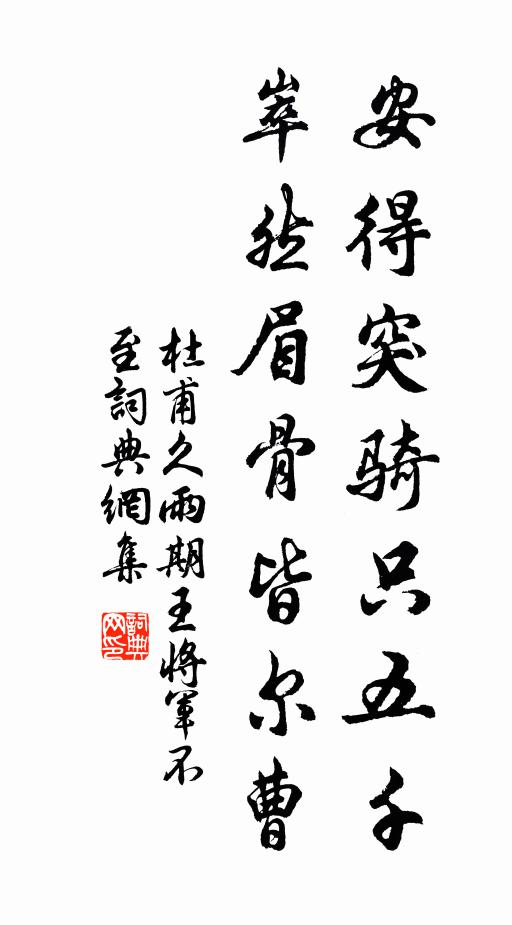 安得突骑只五千
崒然眉骨皆尔曹
杜甫久雨期王将军不
至詞典網集
詞典
网印